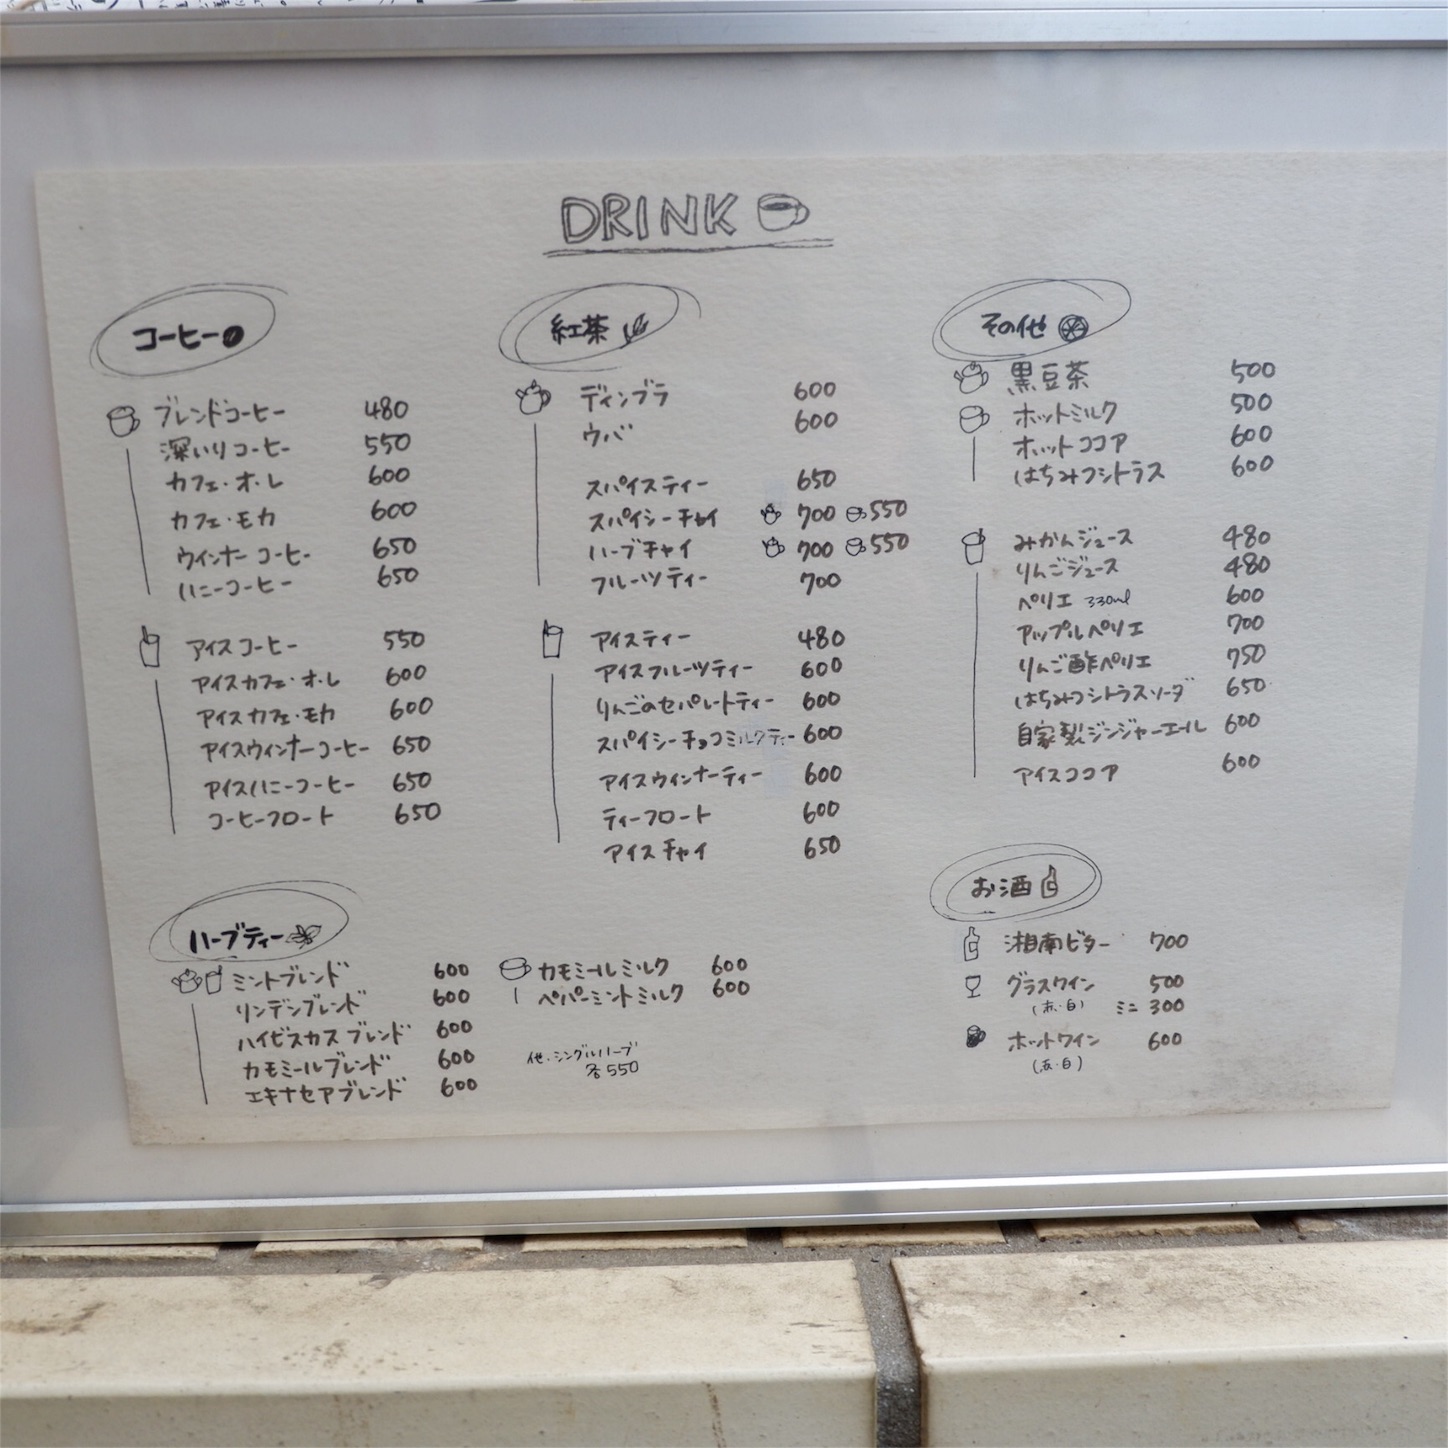 DRINK
コーヒー
ブレンドコーヒー 480
深いりコーヒー 550
カフェ・オ・レ 600
カフェ・モカ 600
ウインナーコーヒー 650
ハニーコーヒー 650
アイスコーヒー 550
アイスカフェ・オ・レ 600
アイスカフェ・モカ 600
アイスウィンナーコーヒー 650
アイスハニーコーヒー 650
コーヒーフロート 650
紅茶
ディンブラ 600
ウバ 600
スパイスティー 650
スパイシーチャイ 700 550
ハーブチャイ 700 550
フルーツティー 700
アイスティー 480
アイスフルーツティー 600
りんごのセパレートティー 600
スパイシーチョコミルクティー 600
アイスウィンナーティー 600
ティーフロート 600
アイスチャイ 650
その他
黒豆茶 500
ホットミルク 500
ホットココア 600
はちみつシトラス 600
みかんジュース 480
りんごジュース 480
ペリエ 330ml 600
アップルペリエ 700
りんご酢ペリエ 750
はちみつシトラスソーダ 650
自家製ジンジャーエール 600
アイスココア 600
ハーブティー
ミントブレンド 600
リンデンブレンド 600
ハイビスカスブレンド 600
カモミールブレンド 600
エキナセアブレンド 600
カモミールミルク 600
ペパーミントミルク 600
他・シングルハーブ
各550
お酒
湘南ビター 700
グラスワイン 500
(赤・白) ミニ 300
ホットワイン 600
(赤・白)